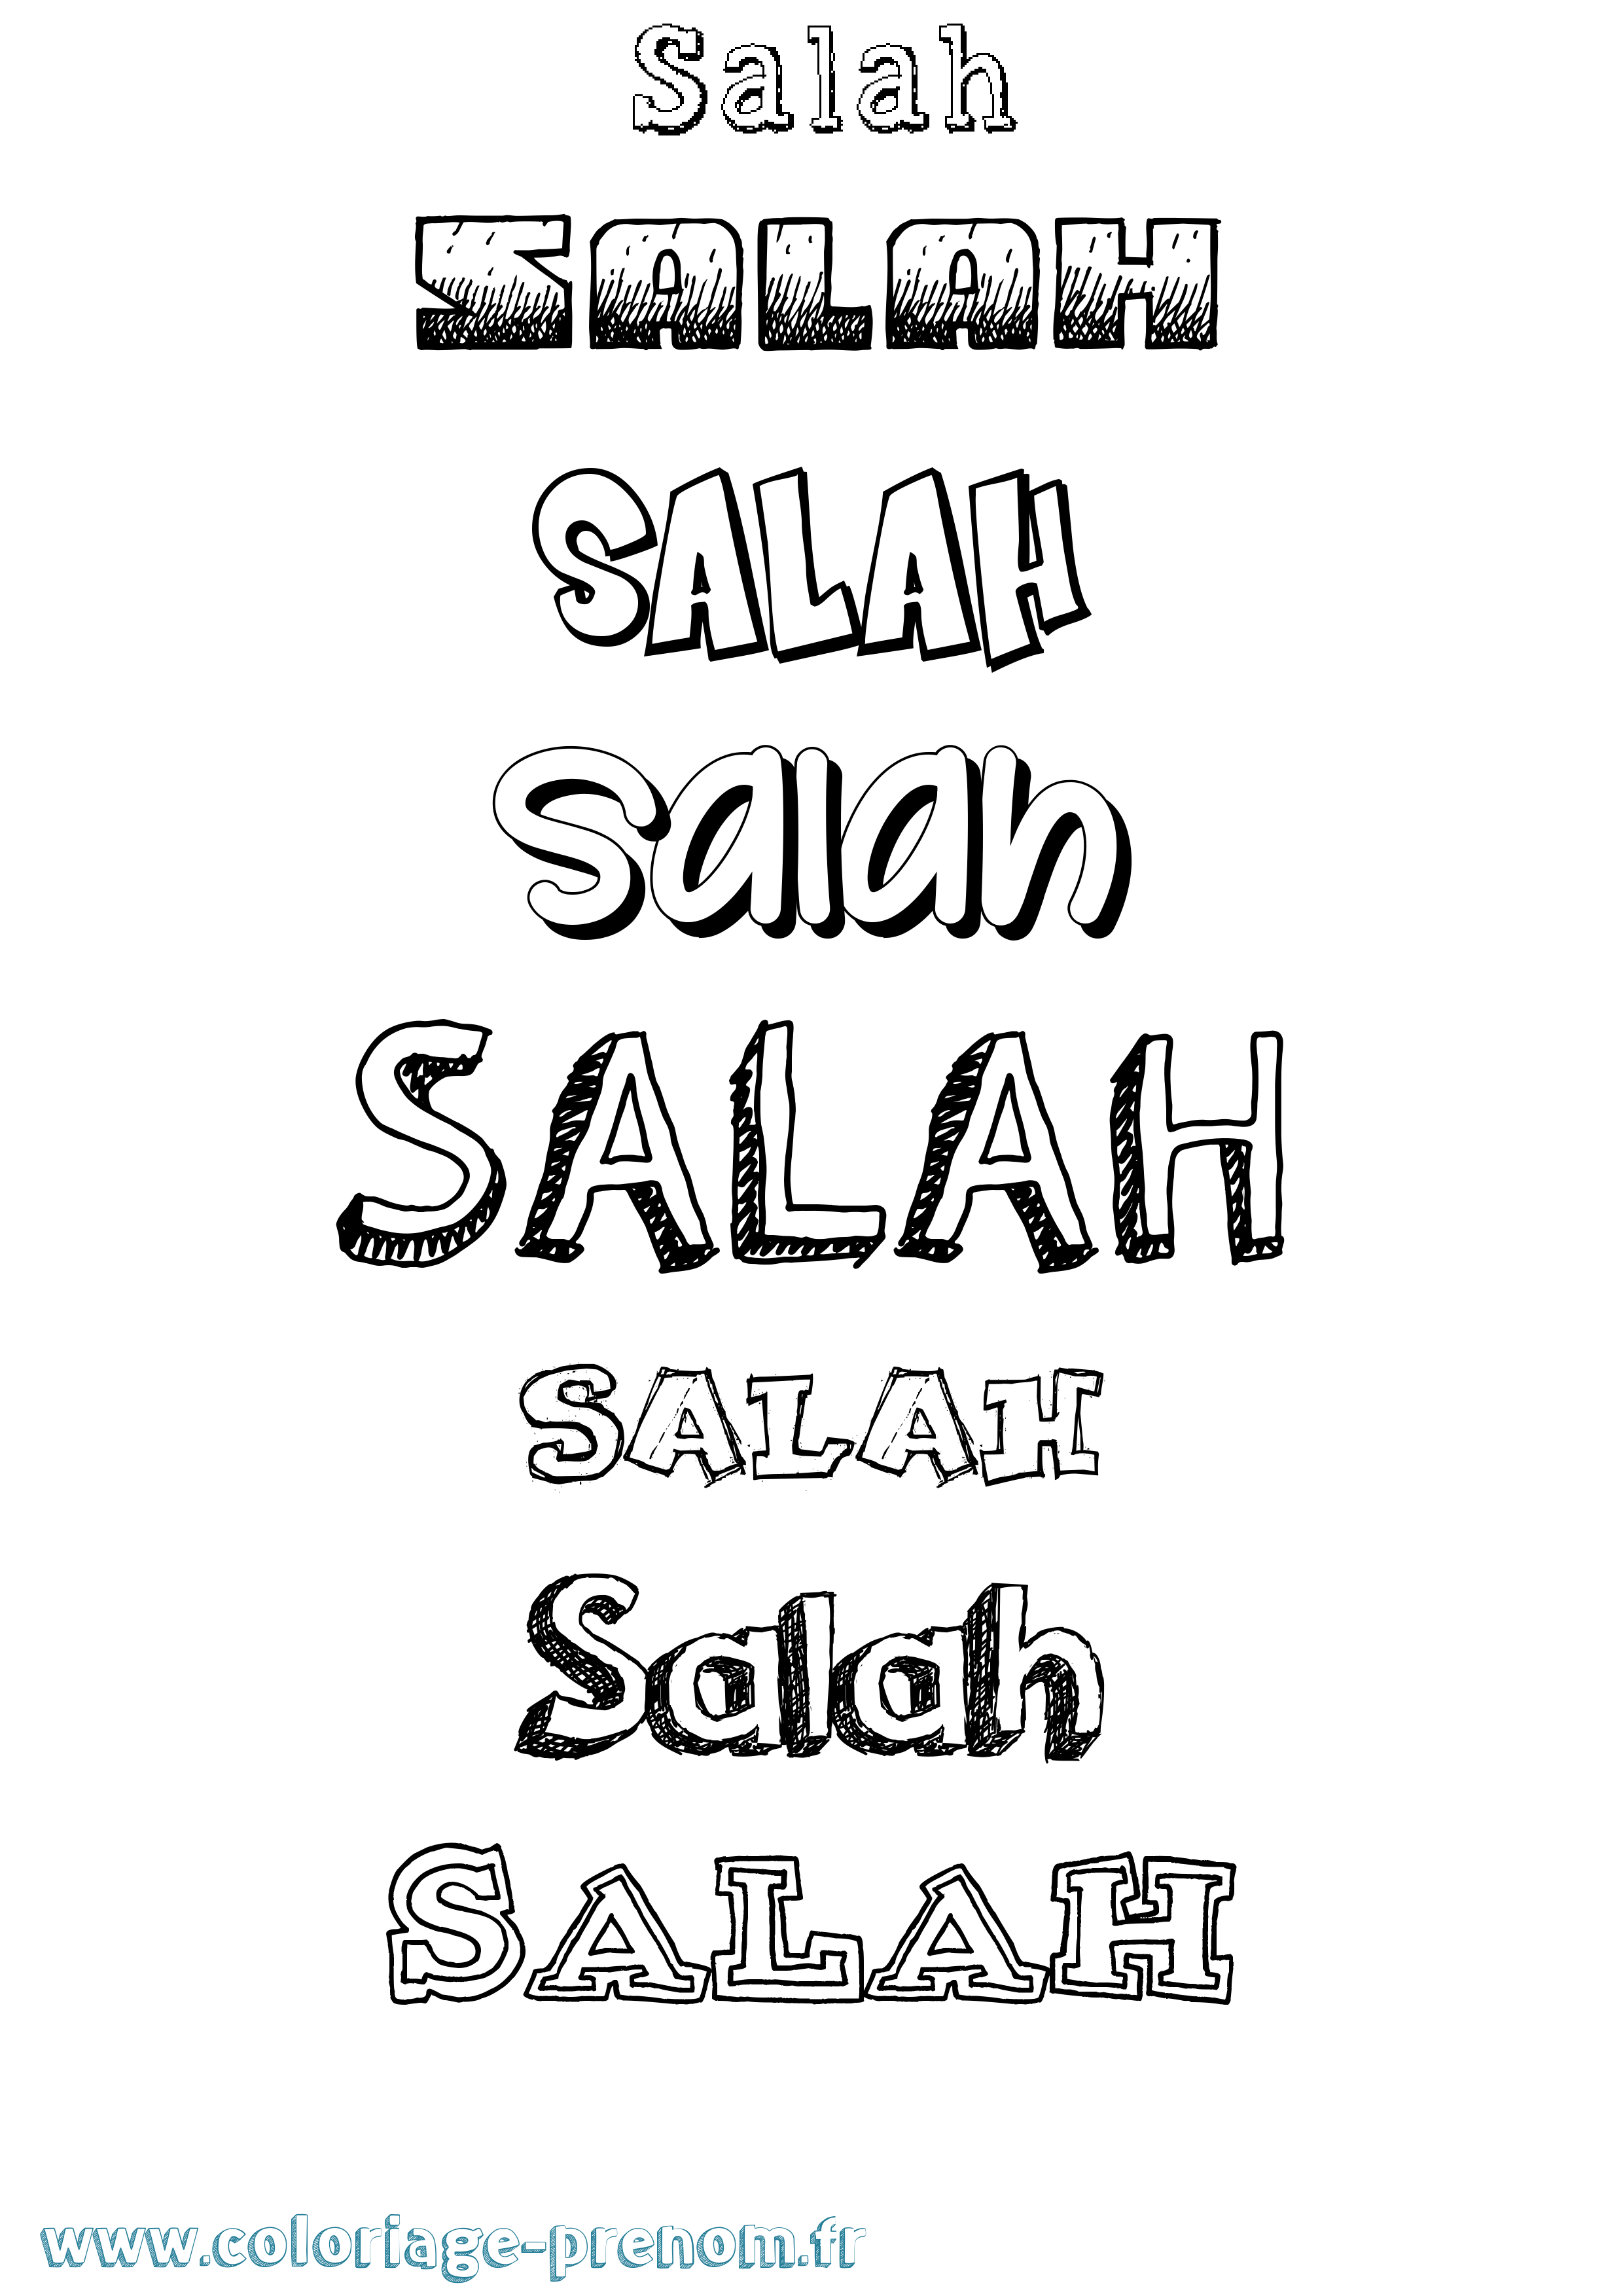 Salah
SALAH
SALAH
Salah
SALAH
SALAH
Salah
SALAH
www.coloriage-prenom.fr